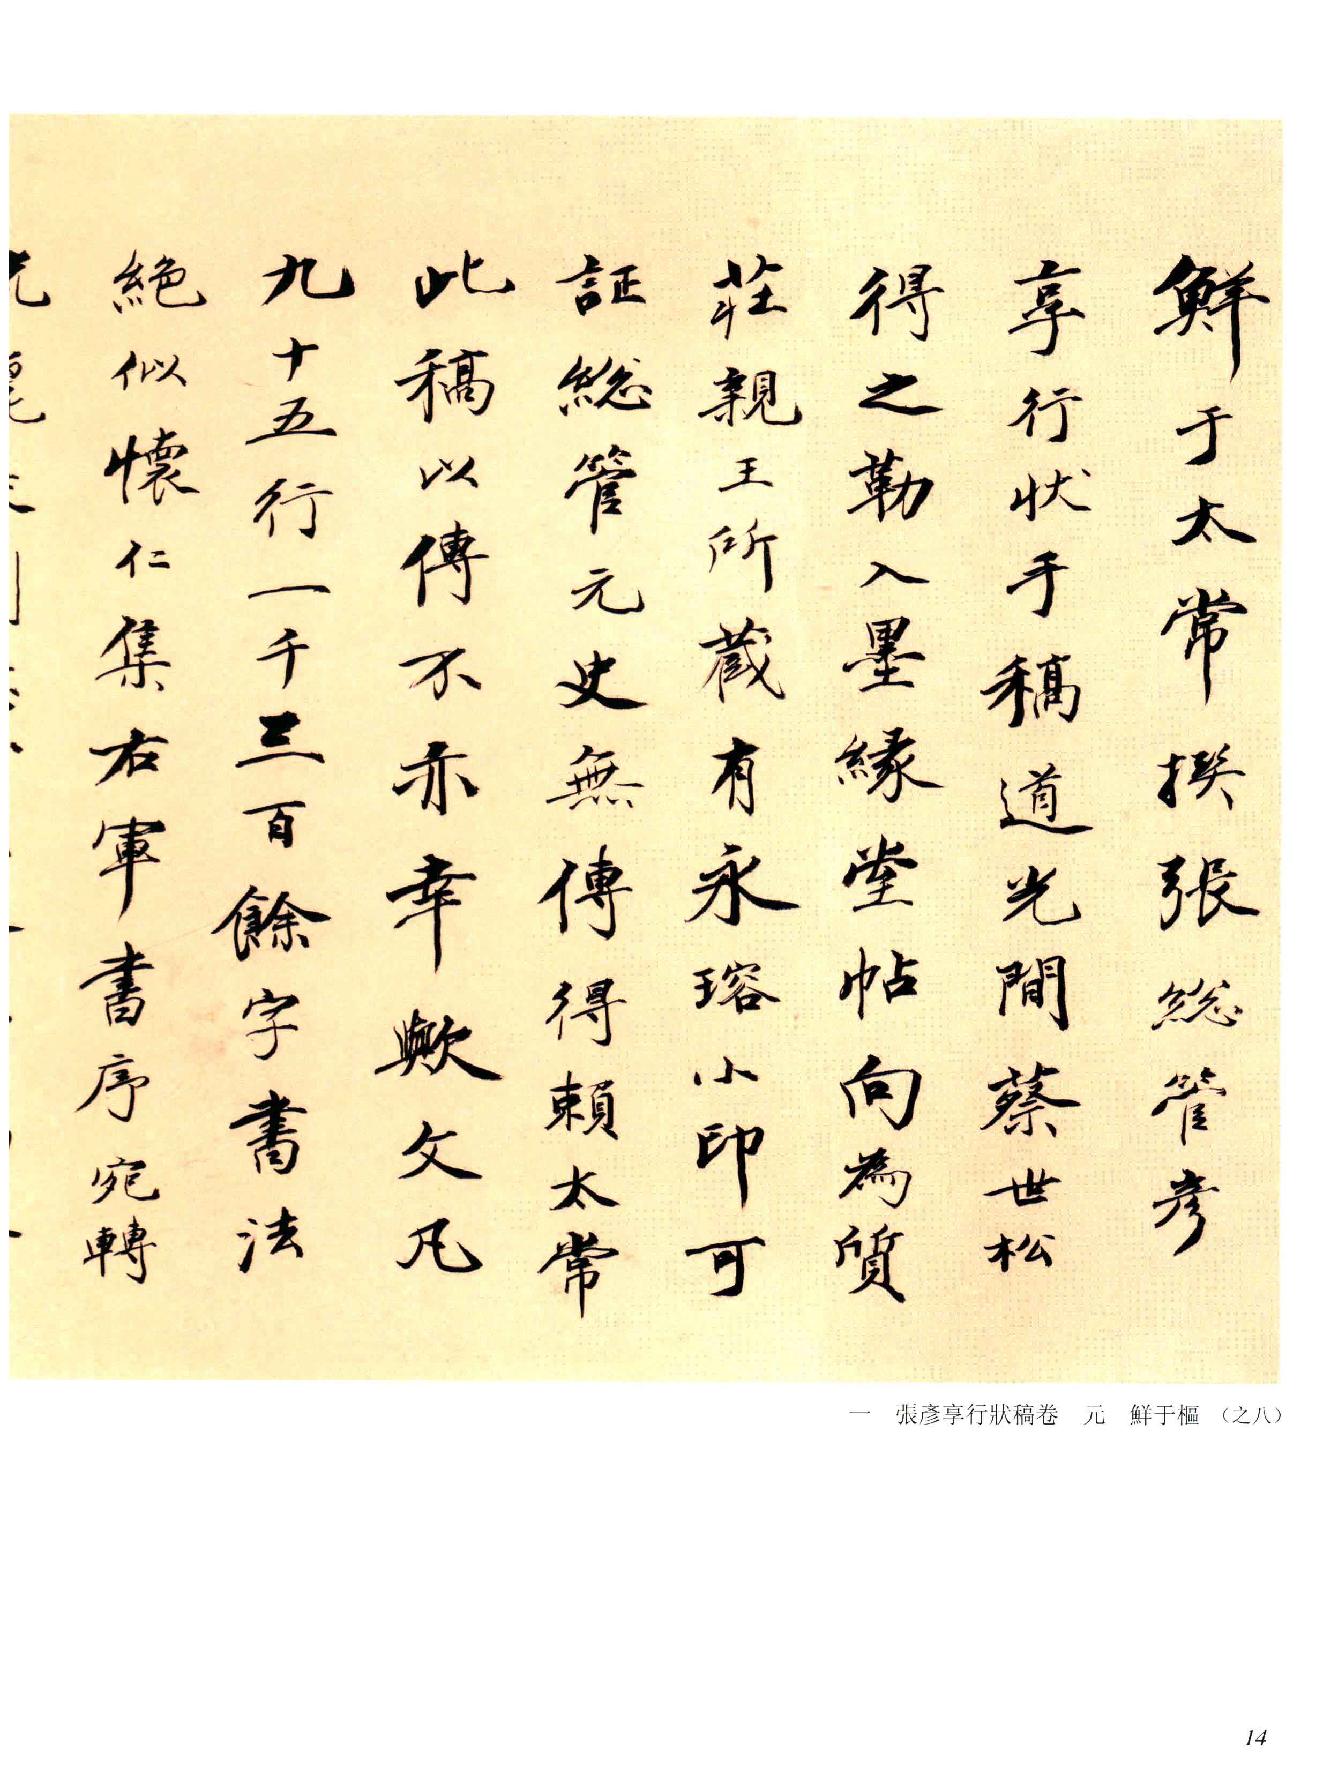 鮮于太常撰張総管彥
享行狀手稿道光間蔡世松
得之勒入墨緣堂帖向為質
莊親王所藏有永瑢小印可
証総管元史無傳得賴太常
此稿以傳不亦幸歟文凡
九十五行一千三百餘字書法
絕似懷仁集右軍書序宛轉
一　張彥享行狀稿卷　元　鮮于樞　（之八）
14